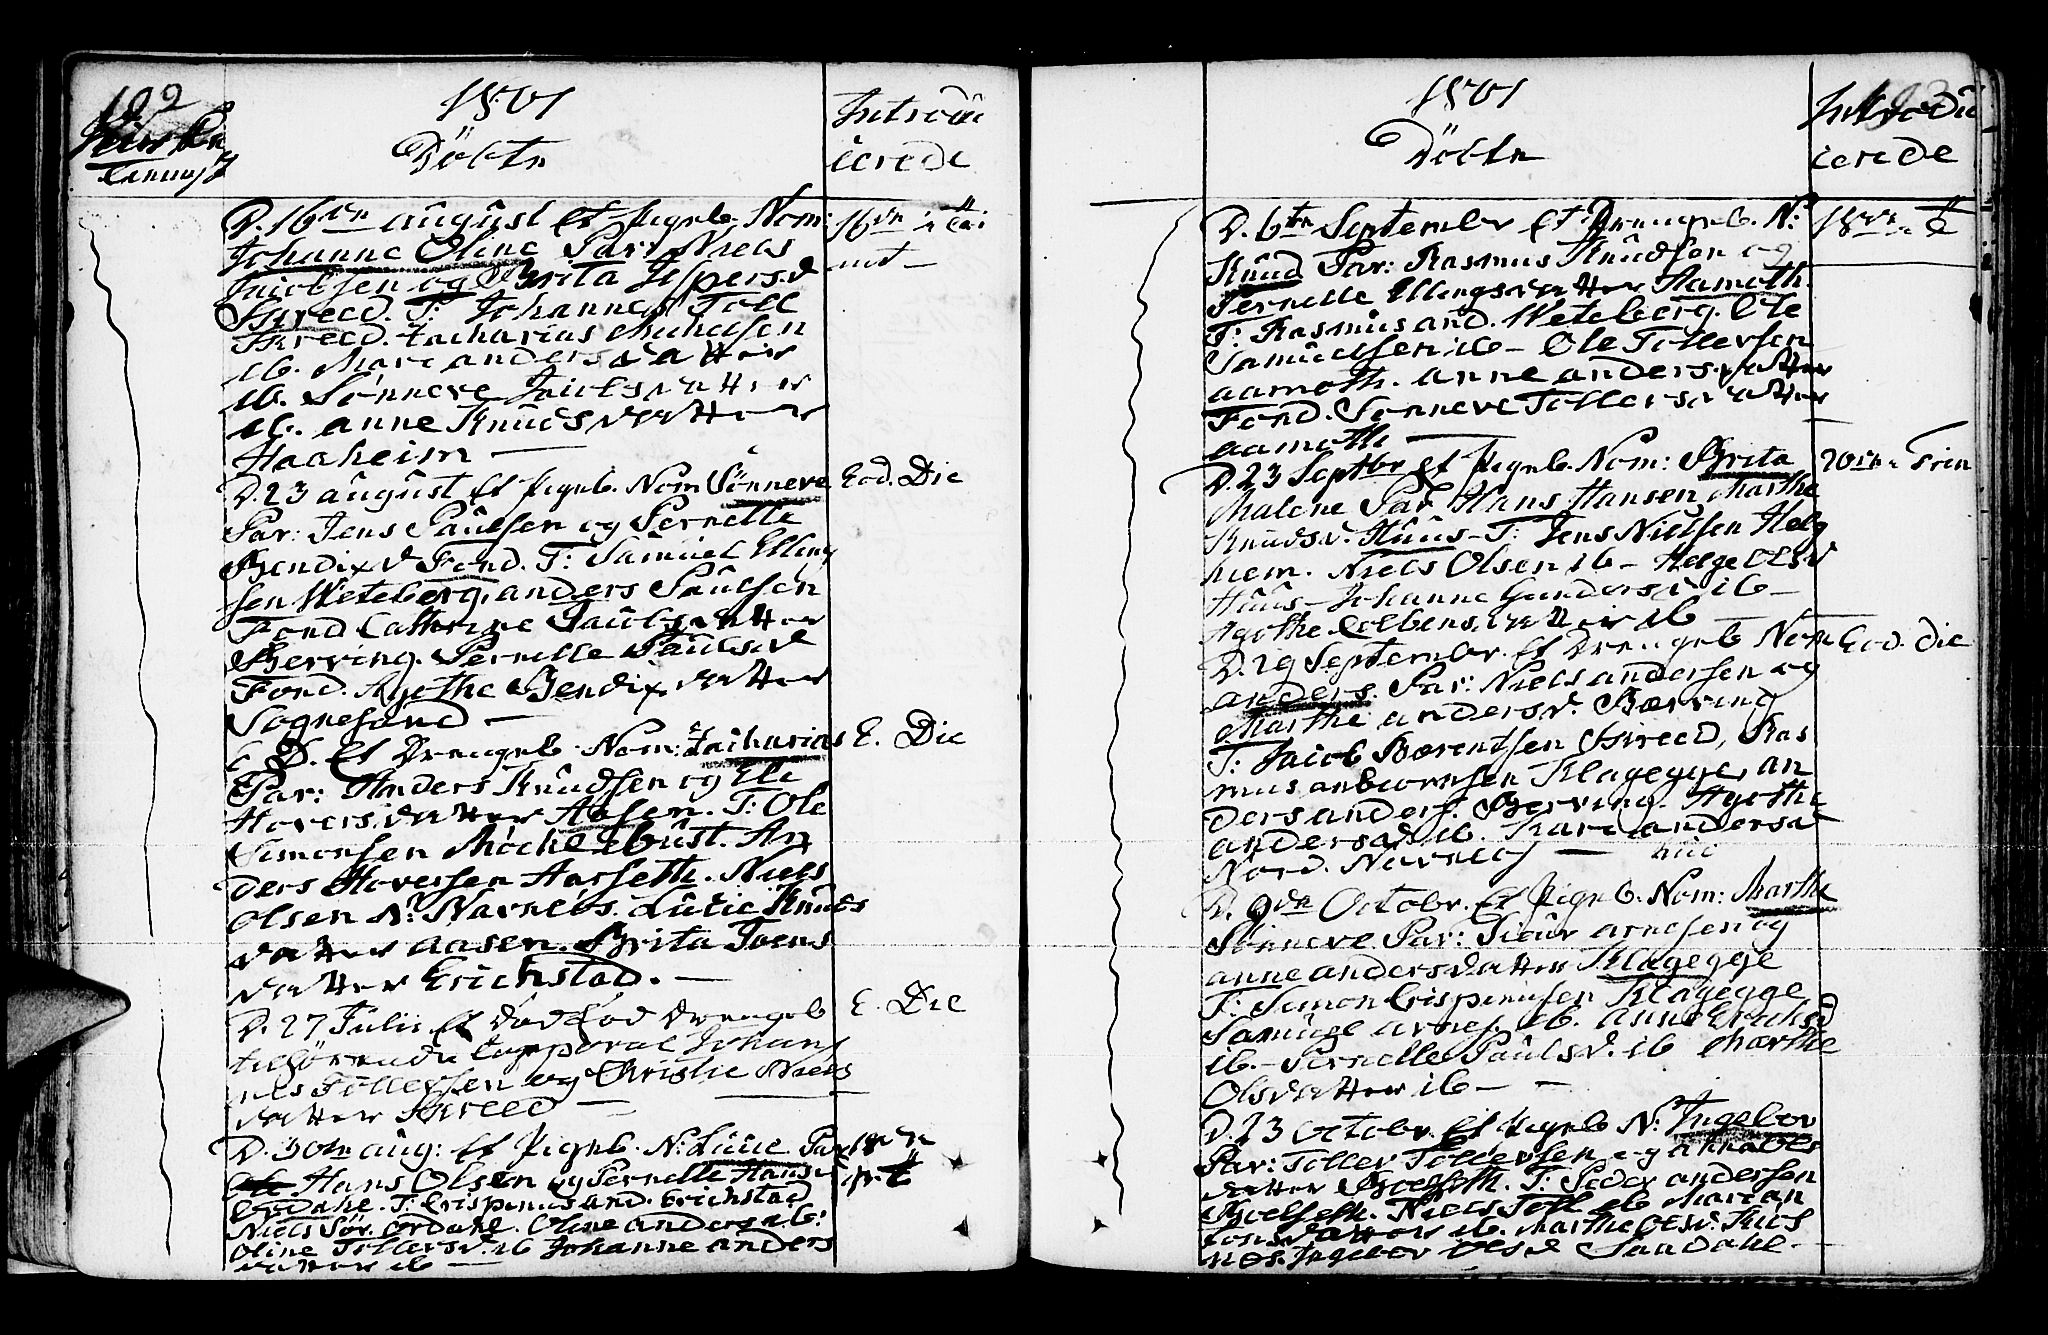 192
1801
Döbte
Introdu
cerede
D. 16de august Et Pigeb. Nom:
Johanne Oline Par: Niels
Jacobsen og Brita Jespersd
Skreed. T: Johannes Toll
Skreed. Zacharias Amundsen
ib. Mari andersdatter
ib. Sønneve Jacobsdatter
ib. anne Knudsdatter
Haaheim —
D. 23 august Et Pigeb. Nom Sønneve
Par: Jens Paulsen og Pernelle
Bendixd Fond. T: Samuel Elling
sen Weteberg, anders Paulsen
Fond Cathrine Jacobsdatter
Berving. Pernelle Paulsd
Fond. Agothe Bendixdatter
Sognesand —
E D. Et Drengeb. Nom: Zacharias
Par: Anders Knudsen og Eli
Hoversdatter Aasen. T: Ole
Simonsen Møchelbust. An
ders Hoversen Aarseth. Niels
Olsen N: Navnløs. Lucie Knuds
datter aasen. Brita Joens
datter Erichstad. —
D. 27 Julii Et død fød Drengeb
tilhørende Corporal Johan
nes Tollefsen og Christie Niels
datter Skreed —
D. 30te aug: Et Pigeb. N: Lucie Par
Hans Olsen og Pernelle Hansd
Ørdahl. T: Crispinus and. Erichstad
Niels Sør. Ørdahl. Oline andersd ib:
Oline Tollersd. ib Johanne anders
datter ib —
16de
Eod. Die
E. Die
E. Die
1801
Döbte
Introdu
cerede
D. 6te September Et Drengeb. N:
Knud Par: Rasmus Knudsen og
Pernelle Ellingsdatter Aamoth.
T: Rasmus and. Weteberg. Ole
Samuelsen ib — Ole Tollersen
aamoth. anne andersdatter
Fond. Sønneve Tollersdatter
aamoth —
D. 23 Septbr Et Pigeb. Nom: Brita
Malene Par Hans Hansen Marthe
Knudsd. Huus — T: Jens Nielsen Helg
hiem. Niels Olsen ib — Helge Olsd
Huus — Johanne Gundersd ib —
Agothe Colbensdatter ib
D. 29 September. Et Drengeb Nom
anders. Par: Niels andersen og
Marthe andersd. Berving
T: Jacob Bærentsen Skreed, Ras
mus anbiørnsen Klagegge, an
ders anders. Berving. Agothe
andersd ib. Kari andersd
Nord. Navnløs —
D. 9de Octobr. Et Pigeb. Nom: Marthe
Sønneve Par: Siour arnesen og
anne andersdatter Klagegge
T: Simon Crispinusen Klagegge
Samuel arnes. ib. anne Erichsd
ib. — Pernelle Paulsd. ib Marthe
Olsdatter ib — —
D. 23 Octobr. Et Pigeb N: Ingebor
Par: Toller Tollersen og anna Ols
datter Bielseth. T: Peder andersen
Bielseth. Niels Toll ib Mari an
tonsdatter ib. Marthe Olsd. Kies
nes. Ingebor Olsd Sandahl.
20de
Eod. Die